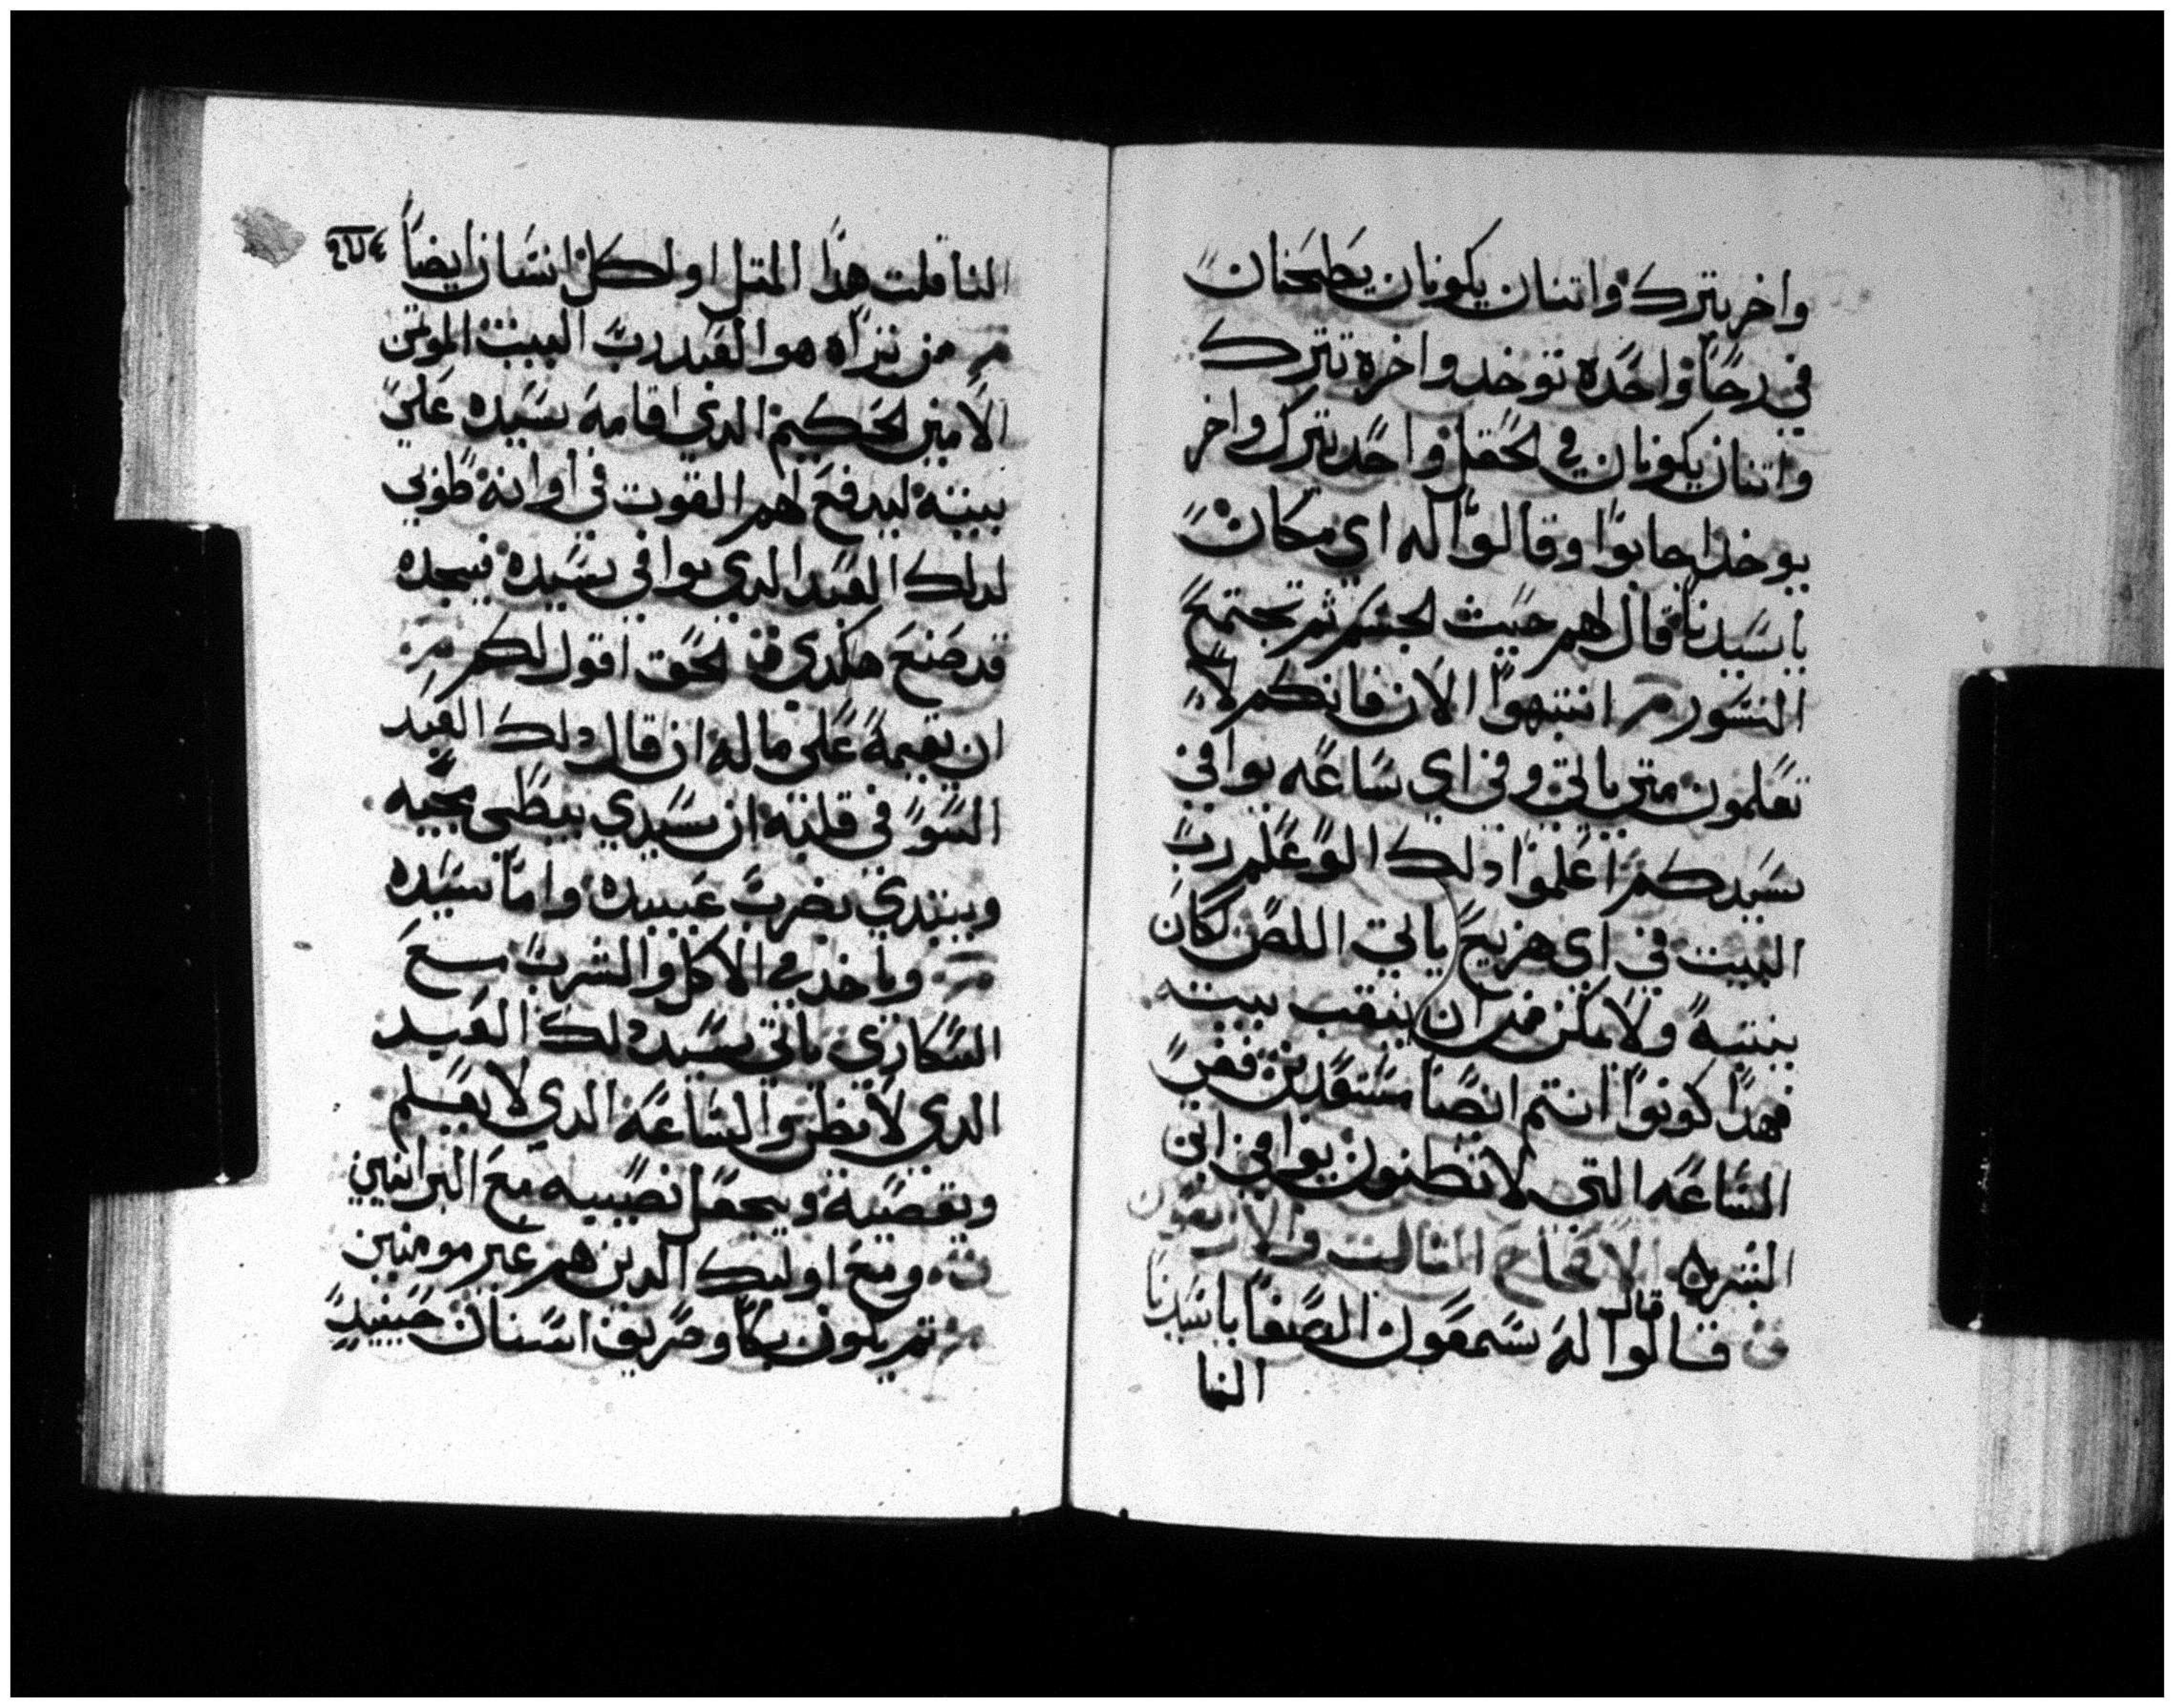 واخر يترك واتنان يكونان يطحنان
في رحًا واحده توخد واخره تترك
واتنان يكونان في الحقل واحد يترك واخر
يوخد اجابوا وقالوا له اي مكان
يا سيدنا قال لهم حيث الجسم تم تجتمع
النسور انتبهوا الان فانكم لا
تعلمون متي ياتي وفي اي ساعه يوافي
سيدكم اعلموا دلك الو علم رب
البيت في اي هزيع ياتي اللص لكان
ينتبه ولا يمكن من ان ينقب بيته
فهدا كونوا انتم ايضا مستعدين ففي
الساعه التي لا تظنون يوافي ابن
البشر الاصحاح التالت والاربعون
قالوا قال له سمعون الصفا يا سيدنا
النا
النا قلت هدا المتل او لكل انسان ايضا
من تراه هو العبد رب البيت الموتمن
الامين الحكيم الدي اقامه سيده علي
بيته ليدفع لهم القوت في اوانه طوبي
لدلك العبد الدي يوافي سيده فيجده
قد صنع هكدي الحق اقول لكم
ان يقيمه علي ماله ان قال دلك العبد
السو في قلبه ان سيدي يبطي مجيه
ويبتدي يضرب عبيده واما سيده
وياخد في الاكل والشرب مع
السكاري ياتي سيد دلك العبد
الدي لا تظن والساعه الدي لا يعلم
ويقصيه ويجعل نصيبه مع المرايين
ومع اوليك الدين هم غير مومنين
تم يكون بكا وصريف اسنان حينيد